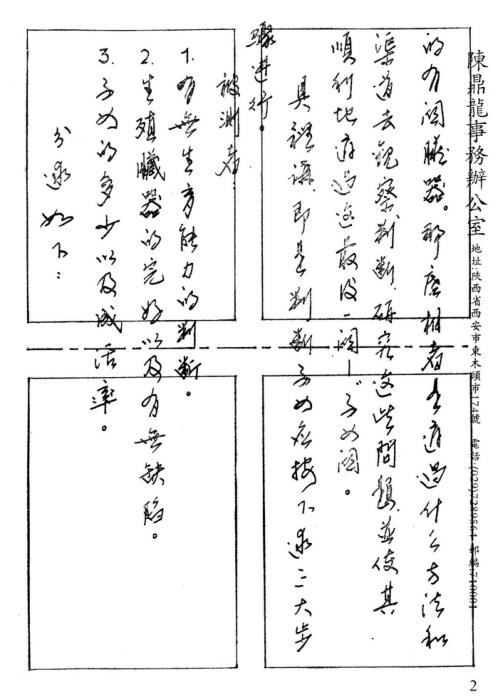 陳鼎龍事務辦公室 地址:陝西省西安市東木頭市174號 電話:(029)7289564 郵編710001
的有關臟器。那麼相者是通過什么方法和
渠道去觀察判斷、研究這些問題,並使其
順利地通過這最後一關—"子女關。
具體講,即是判斷子女應按下述三大步
驟進行。
被測者:
1. 有無生育能力的判斷。
2. 生殖臟器的完好以及有無缺陷。
3. 子女的多少以及成活率。
分述如下:
2